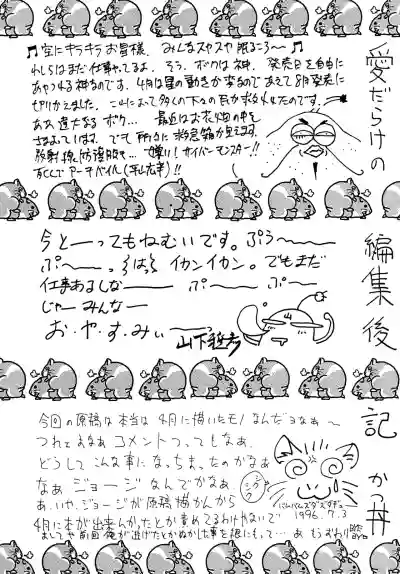 愛だらけの編集後記 かつ丼
♬空にキラキラお星様、みんなスヤスヤ眠るころ〜♬
わしらはまだ仕事やってるよ。そう、ボクは神。発売日を自由に
あやつる神なのです。4月は星の動きが変なのであえて8月発売に
きりかえました。これによって多くの下々の民が救われたのです。
ああ偉大なるボク…。最近はお花畑の中を
さまよっています。でも所々に救急箱が見えます。
放射線防護服も…嫌い!サイバーモンスター!!
今と―ってもねむいです。ぷう〜
ぷ〜。イカンイカン。でもまだ
仕事あるしな― ぷ― ぷ―
じゃ―みんな―
お・や・す・みぃ―
山下
今回の原稿は本当は4月に描いたモノなんだヨなぁ〜
つれてまなぁコメントつってもなぁ、
どうしてこんな事になっちまったのかなぁ
なぁジョージなんでかなぁ、
あ、いや、ジョージが原稿描かんから
4月に本が出来んかったとか責めてるわけやないで
1996.7.3